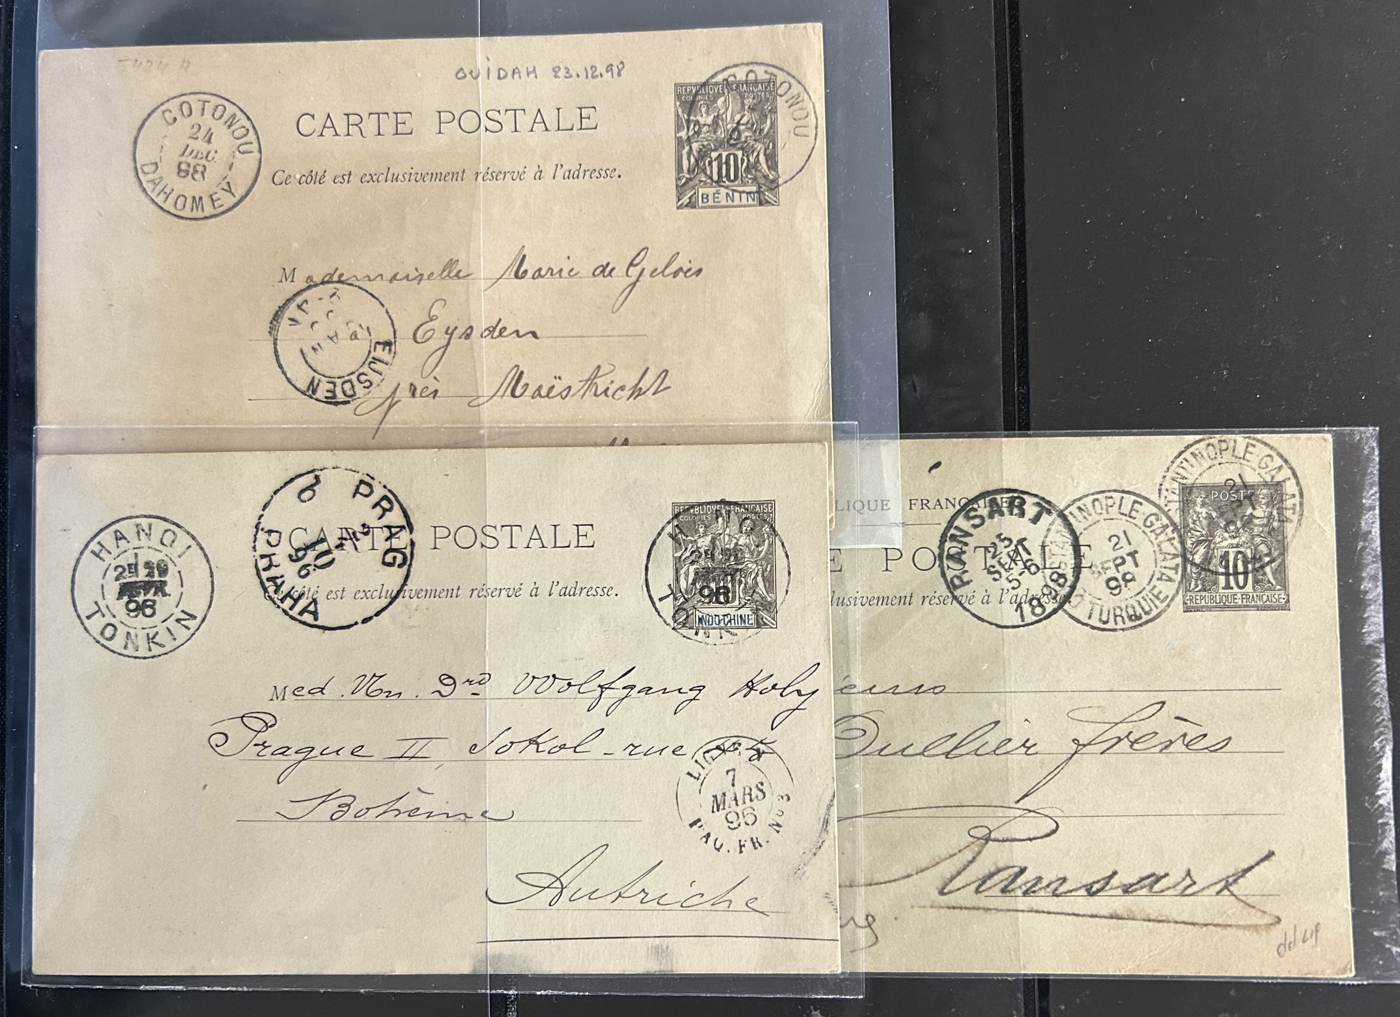 OUIDAH 23.12.98
COTONOU
24
DEC
98
DAHOMEY
CARTE POSTALE
Ce côté est exclusivement réservé à l'adresse.
REPUBLIQUE FRANÇAISE
COLONIES POSTES
10
BÉNIN
COTONOU
Mademoiselle Marie de Geloes
Eysden
près Maëstricht
EIJSDEN
HANOI
FEVR.
96
TONKIN
PRAG
6
10
2
96
PRAHA
CARTE POSTALE
côté est exclusivement réservé à l'adresse.
REPUBLIQUE FRANÇAISE
COLONIES POSTES
96
INDO-CHINE
Wolfgang Holy
Prague II Sokol-rue
Bohême
Autriche
7
MARS
96
PAQ. FR. No 3
LIQUE FRANÇAISE
E POSTALE
lusivement réservé à l'adresse
RANSART
25
SEPT
5-6
1898
TINOPLE GALATA
21
SEPT
98
TURQUIE
TANTINOPLE GALATA
21
SEPT
POSTES
10
REPUBLIQUE FRANÇAISE
frères
Ransart